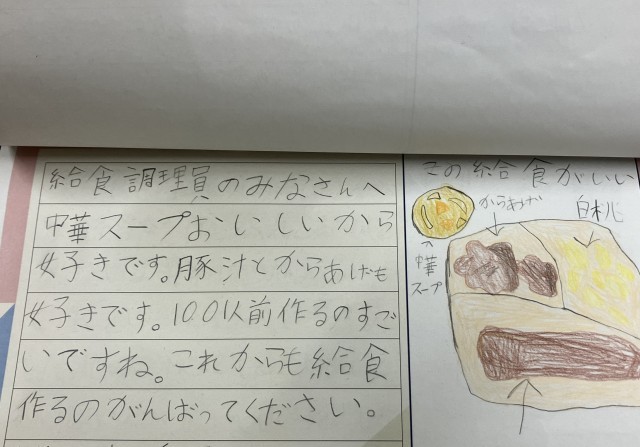 給食調理員のみなさんへ
中華スープおいしいから
好きです。豚汁とからあげも
好きです。100人前作るのすご
いですね。これからも給食
作るのがんばってください。
この給食がいい
からあげ
白桃
中華
スープ